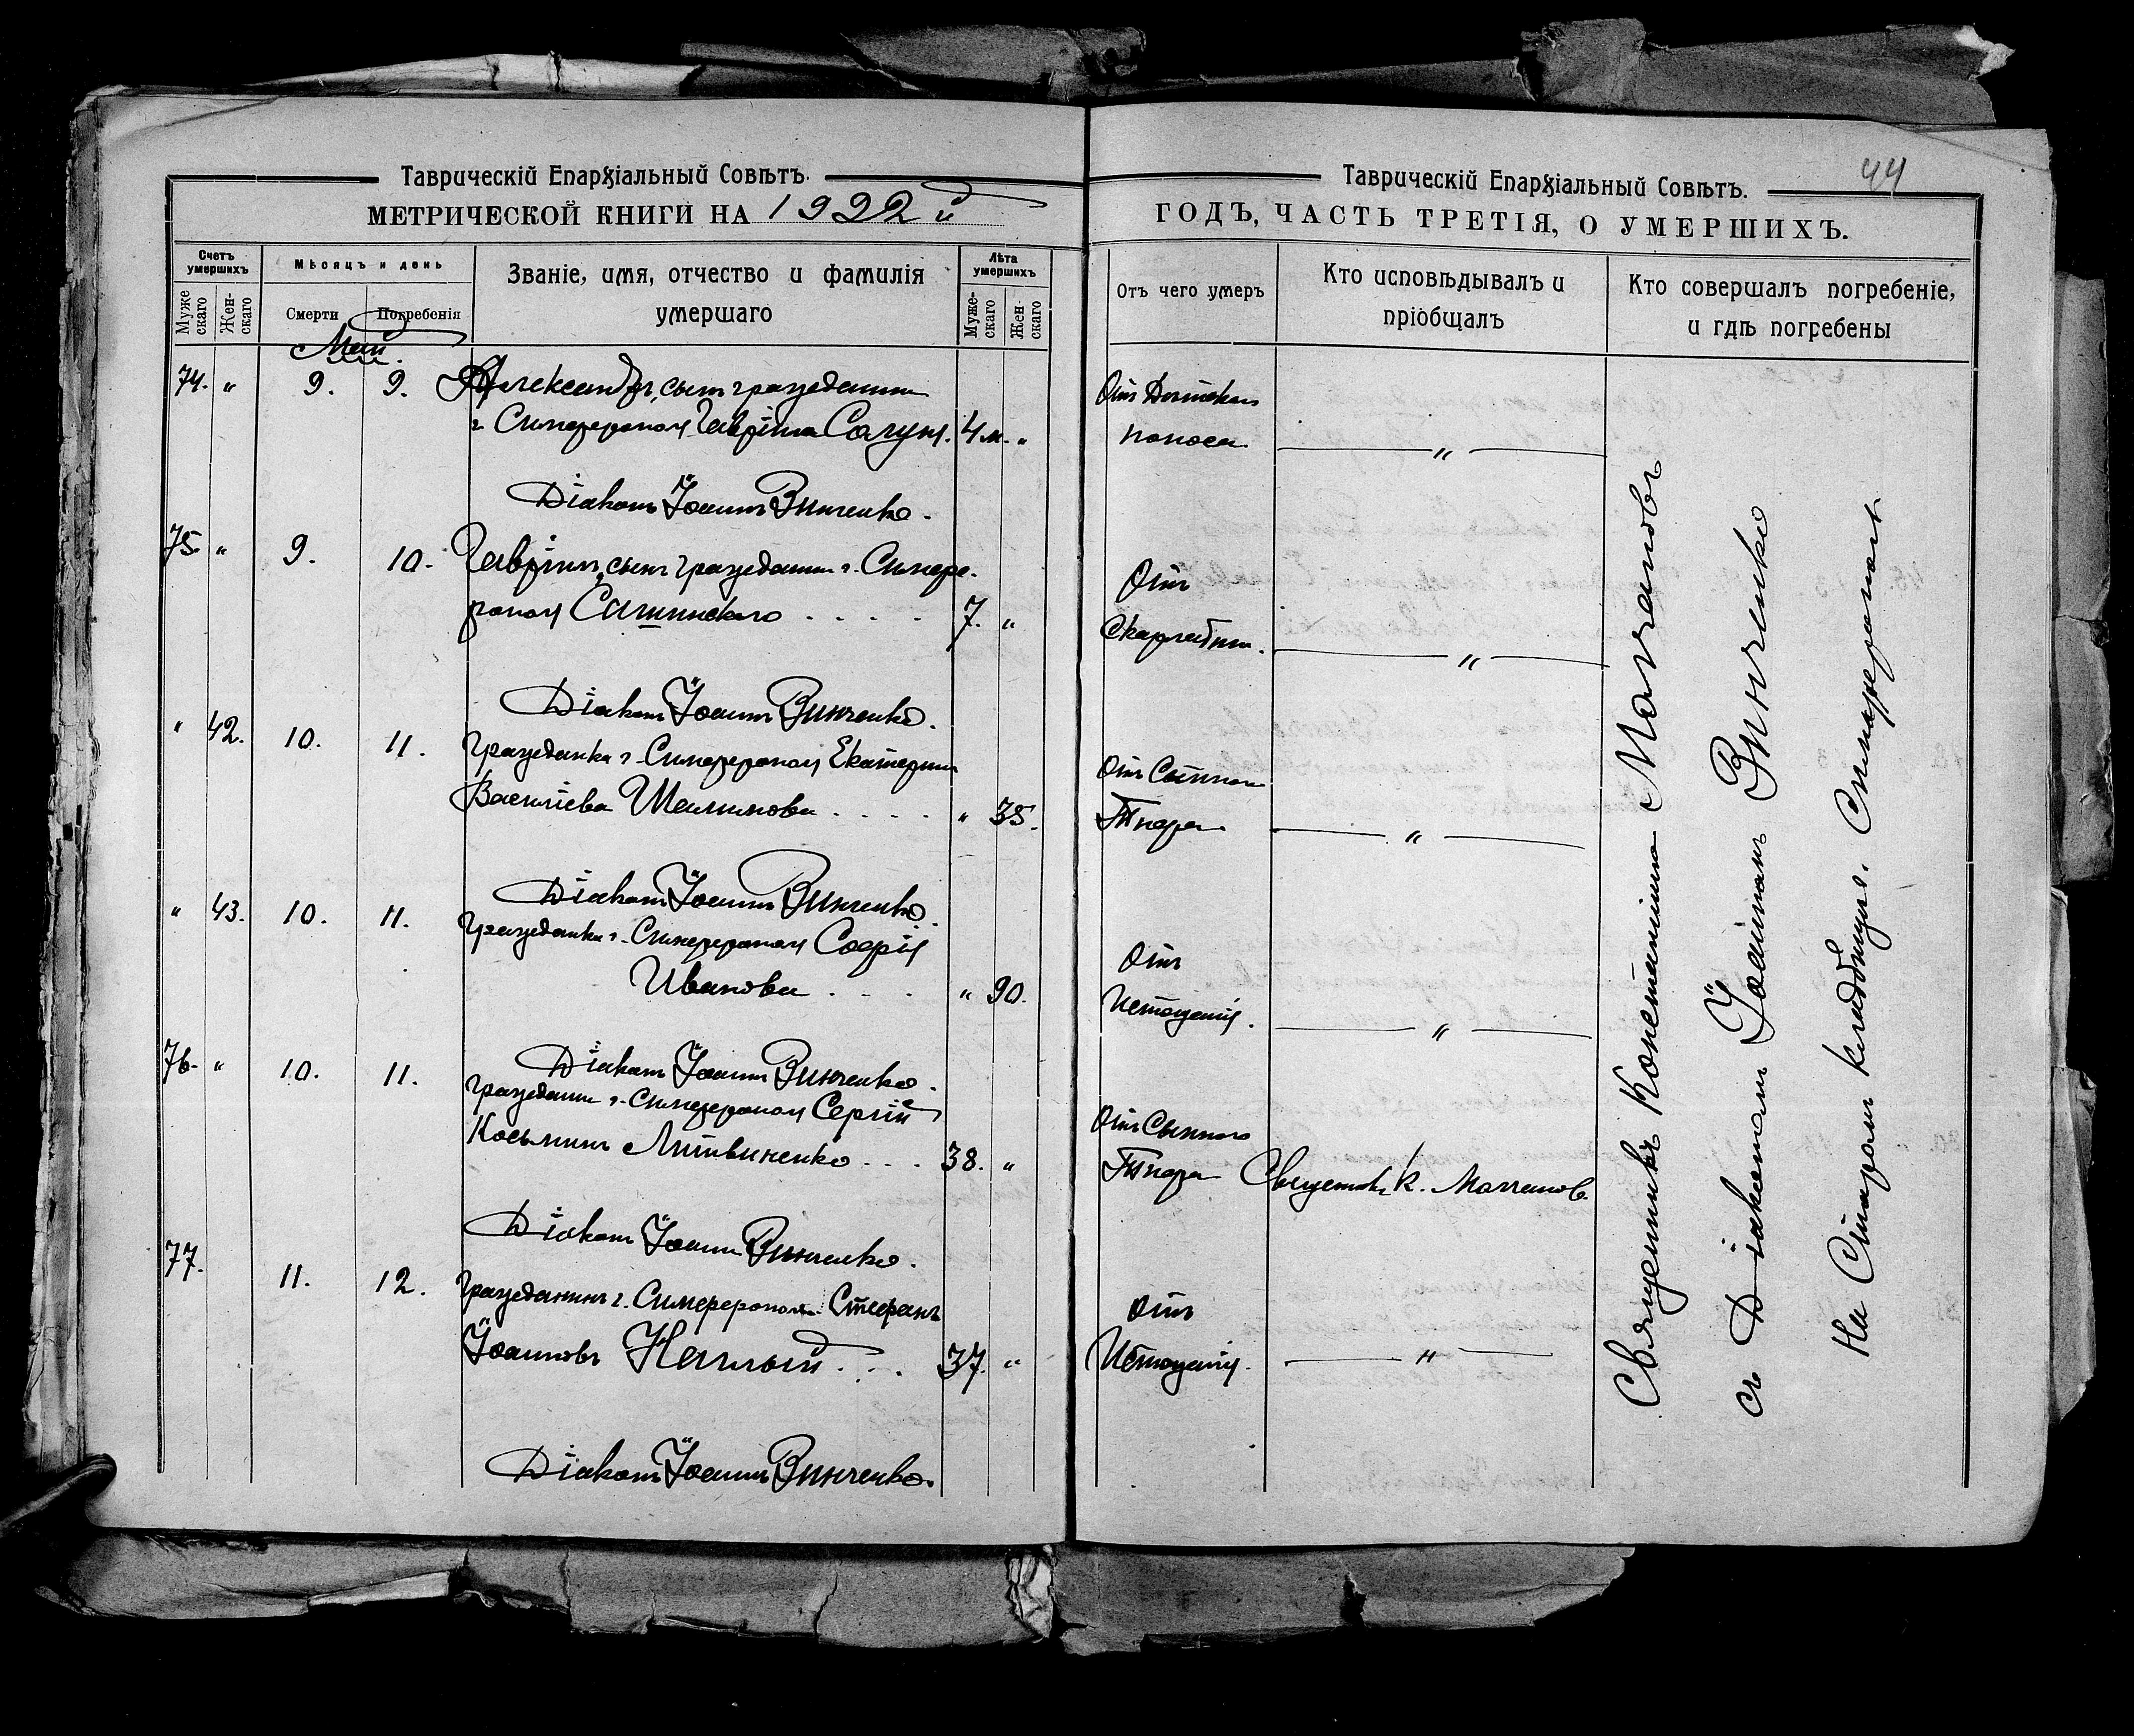 Таврическій Епархіальный Совѣтъ.
МЕТРИЧЕСКОЙ КНИГИ НА 1922 й
Счетъ умершихъ
Мѣсяцъ и день
Званіе, имя, отчество и фамилія умершаго
Лѣта умершихъ
Мужескаго
Женскаго
Смерти
Погребенія
Мужескаго
Женскаго
Май.
74. " 9. 9. Александръ, сынъ гражданина
г. Симферополя Гавріила 4 м. "
Діаконъ Іоаннъ Винченко.
75. " 9. 10. Гавріилъ, сынъ гражданина г. Симфе-
рополя 7. "
Діаконъ Іоаннъ Винченко.
" 42. 10. 11. Гражданка г. Симферополя Екатерина
Василіева " 35.
Діаконъ Іоаннъ Винченко.
" 43. 10. 11. Гражданка г. Симферополя Софія
Иванова " 90.
Діаконъ Іоаннъ Винченко.
76. " 10. 11. Гражданинъ г. Симферополя Сергій
Косьминъ Литвиненко 38. "
Діаконъ Іоаннъ Винченко.
77. 11. 12. Гражданинъ г. Симферополя Стефанъ
Іоанновъ 37. "
Діаконъ Іоаннъ Винченко.
44
Таврическій Епархіальный Совѣтъ.
ГОДЪ, ЧАСТЬ ТРЕТІЯ, О УМЕРШИХЪ.
Отъ чего умеръ
Кто исповѣдывалъ и пріобщалъ
Кто совершалъ погребеніе, и гдѣ погребены
Отъ Дѣтскаго
поноса "
Отъ
Скарлатины. "
Отъ Сыпного
Тифа "
Отъ
Истощенія. "
Отъ Сыпного
Тифа Священникъ К. Молчановъ
Отъ
Истощенія. "
Священникъ Константинъ Молчановъ
съ Діакономъ Іоанномъ Винченко
На Старомъ кладбищѣ г. Симферополя